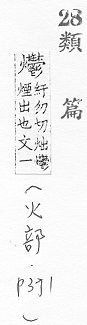 28類篇
爩
紆勿切炪爩
煙出也文一
(火部.P391)